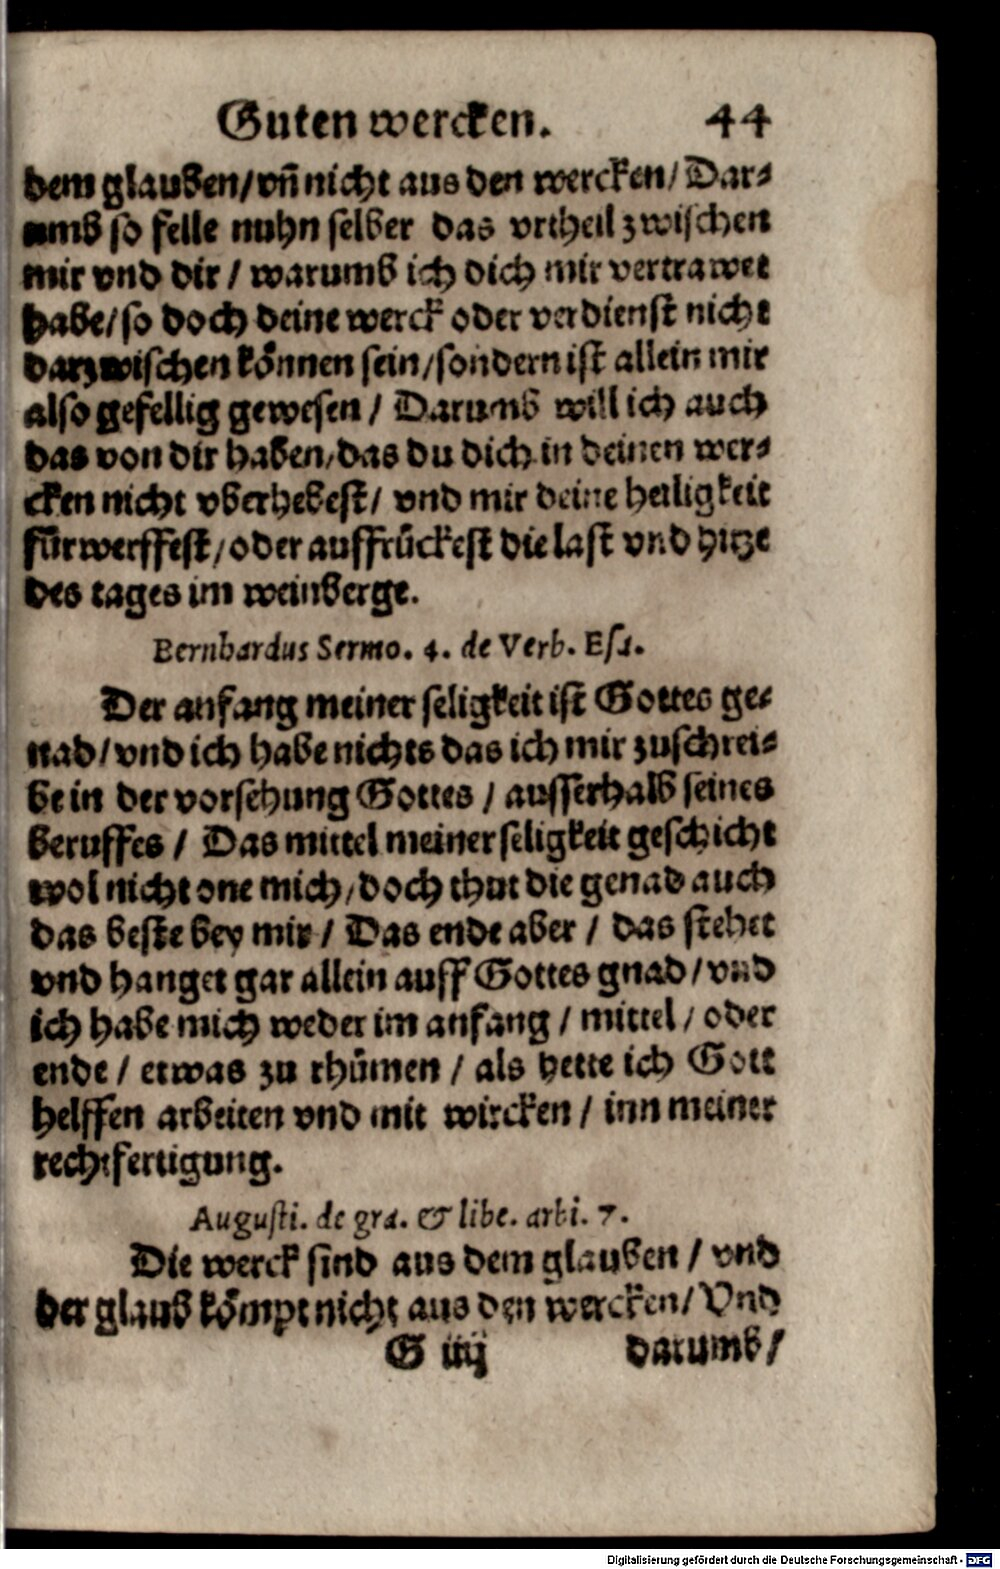 Guten wercken. 44
dem glauben/vn̄ nicht aus den wercken/ Dar⸗
umb so felle nuhn selber das vrtheil zwischen
mir vnd dir / warumb ich dich mir vertrawet
habe/so doch deine werck oder verdienst nicht
darzwischen können sein/sondern ist allein mir
also gefellig gewesen / Darumb will ich auch
das von dir haben/das du dich in deinen wer⸗
cken nicht vberhebest/ vnd mir deine heiligkeit
fürwerffest/oder auffrückest die last vnd hitze
des tages im weinberge.
Bernhardus Sermo. 4. de Verb. Esa.
Der anfang meiner seligkeit ist Gottes ge⸗
nad/vnd ich habe nichts das ich mir zuschrei⸗
be in der vorsehung Gottes / ausserhalb seines
beruffes / Das mittel meiner seligkeit geschicht
wol nicht one mich/doch thut die genad auch
das beste bey mir / Das ende aber / das stehet
vnd hanget gar allein auff Gottes gnad/vnd
ich habe mich weder im anfang / mittel / oder
ende / etwas zu rhümen / als hette ich Gott
helffen arbeiten vnd mit wircken / inn meiner
rechtfertigung.
Augusti. de gra. & libe. arbi. 7.
Die werck sind aus dem glauben / vnd
der glaub kömpt nicht aus den wercken/ Vnd
G iiij darumb/
Digitalisierung gefördert durch die Deutsche Forschungsgemeinschaft - DFG